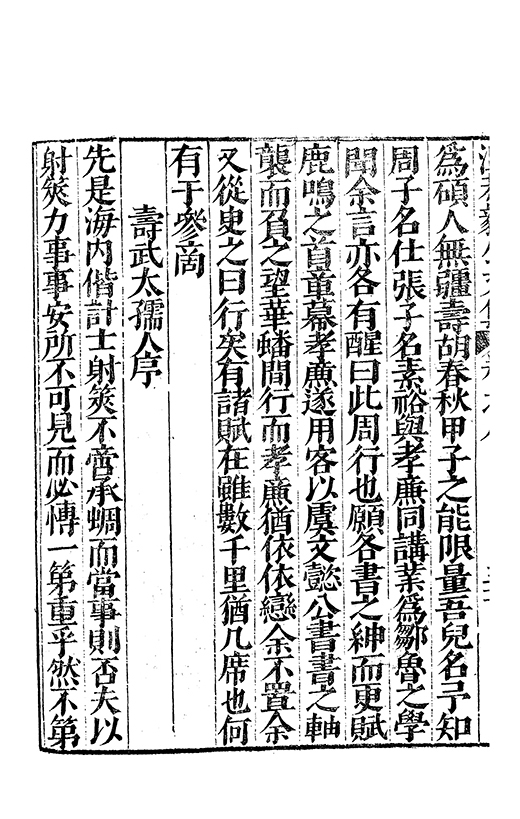 為碩人無疆壽胡春秋甲子之能限量吾兒名予知
周子名仕張子名素裕與孝廉同講業為鄒魯之學
聞余言亦各有醒曰此周行也願各書之紳而更賦
鹿鳴之首章幕孝廉遂用客以虞文懿公書書之軸
襲而負之望華蟠間行而孝廉猶依依戀余不置余
又從臾之曰行矣有諸賦在雖數千里猶几席也何
有于參商
壽武太孺人序
先是海內偕計士射筴不啻承蜩而當事則否夫以
射筴力事事安所不可見而必慱一第重乎然不第